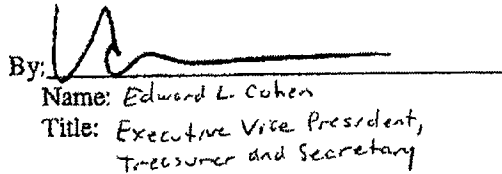 By:
Name: Edward L. Cohen
Title: Executive Vice President,
Treasurer and Secretary